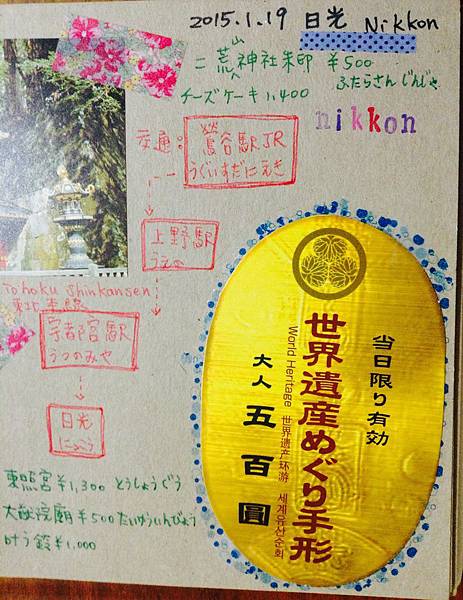 2015.1.19 日光 Nikkon
二荒山神社朱印 ¥500
ふたらさんじんじゃ
チーズケーキ ¥400
nikkon
交通:
鶯谷駅JR
うぐいすだにえき
上野駅
うえの
Tohoku Shinkansen
宇都宮駅
うつのみや
日光
にっこう
東照宮¥1,300 とうしょうぐう
大猷院廟¥500たいゆういんびょう
叶う鈴¥1,000
当日限り有効
世界遺産めぐり手形
World Heritage 世界遗产环游 세계유산순회
大人 五百圓